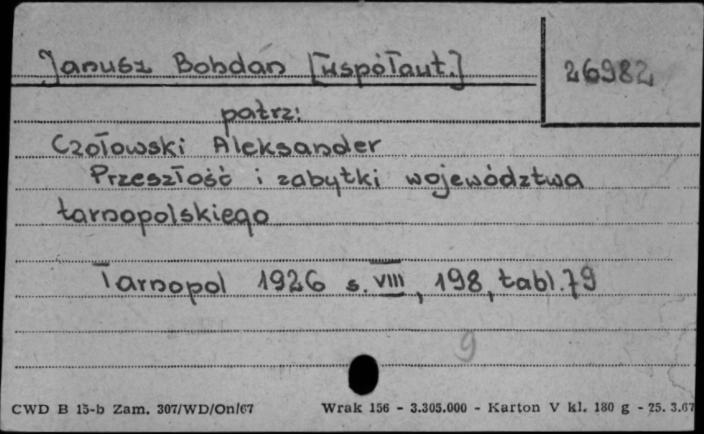 Janusz Bohdan [współaut.]
26982
patrz:
Czołowski Aleksander
Przeszłość i zabytki województwa
tarnopolskiego
Tarnopol 1926 s. VIII, 198, tabl. 79
9
CWD B 15-b Zam. 307/WD/On/67 Wrak 156 - 3.305.000 - Karton V kl. 180 g - 25. 3.67